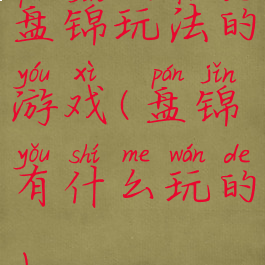 盘锦玩法的
yóu xì pán jǐn
游戏(盘锦
yǒu shí me wán de
有什么玩的
)